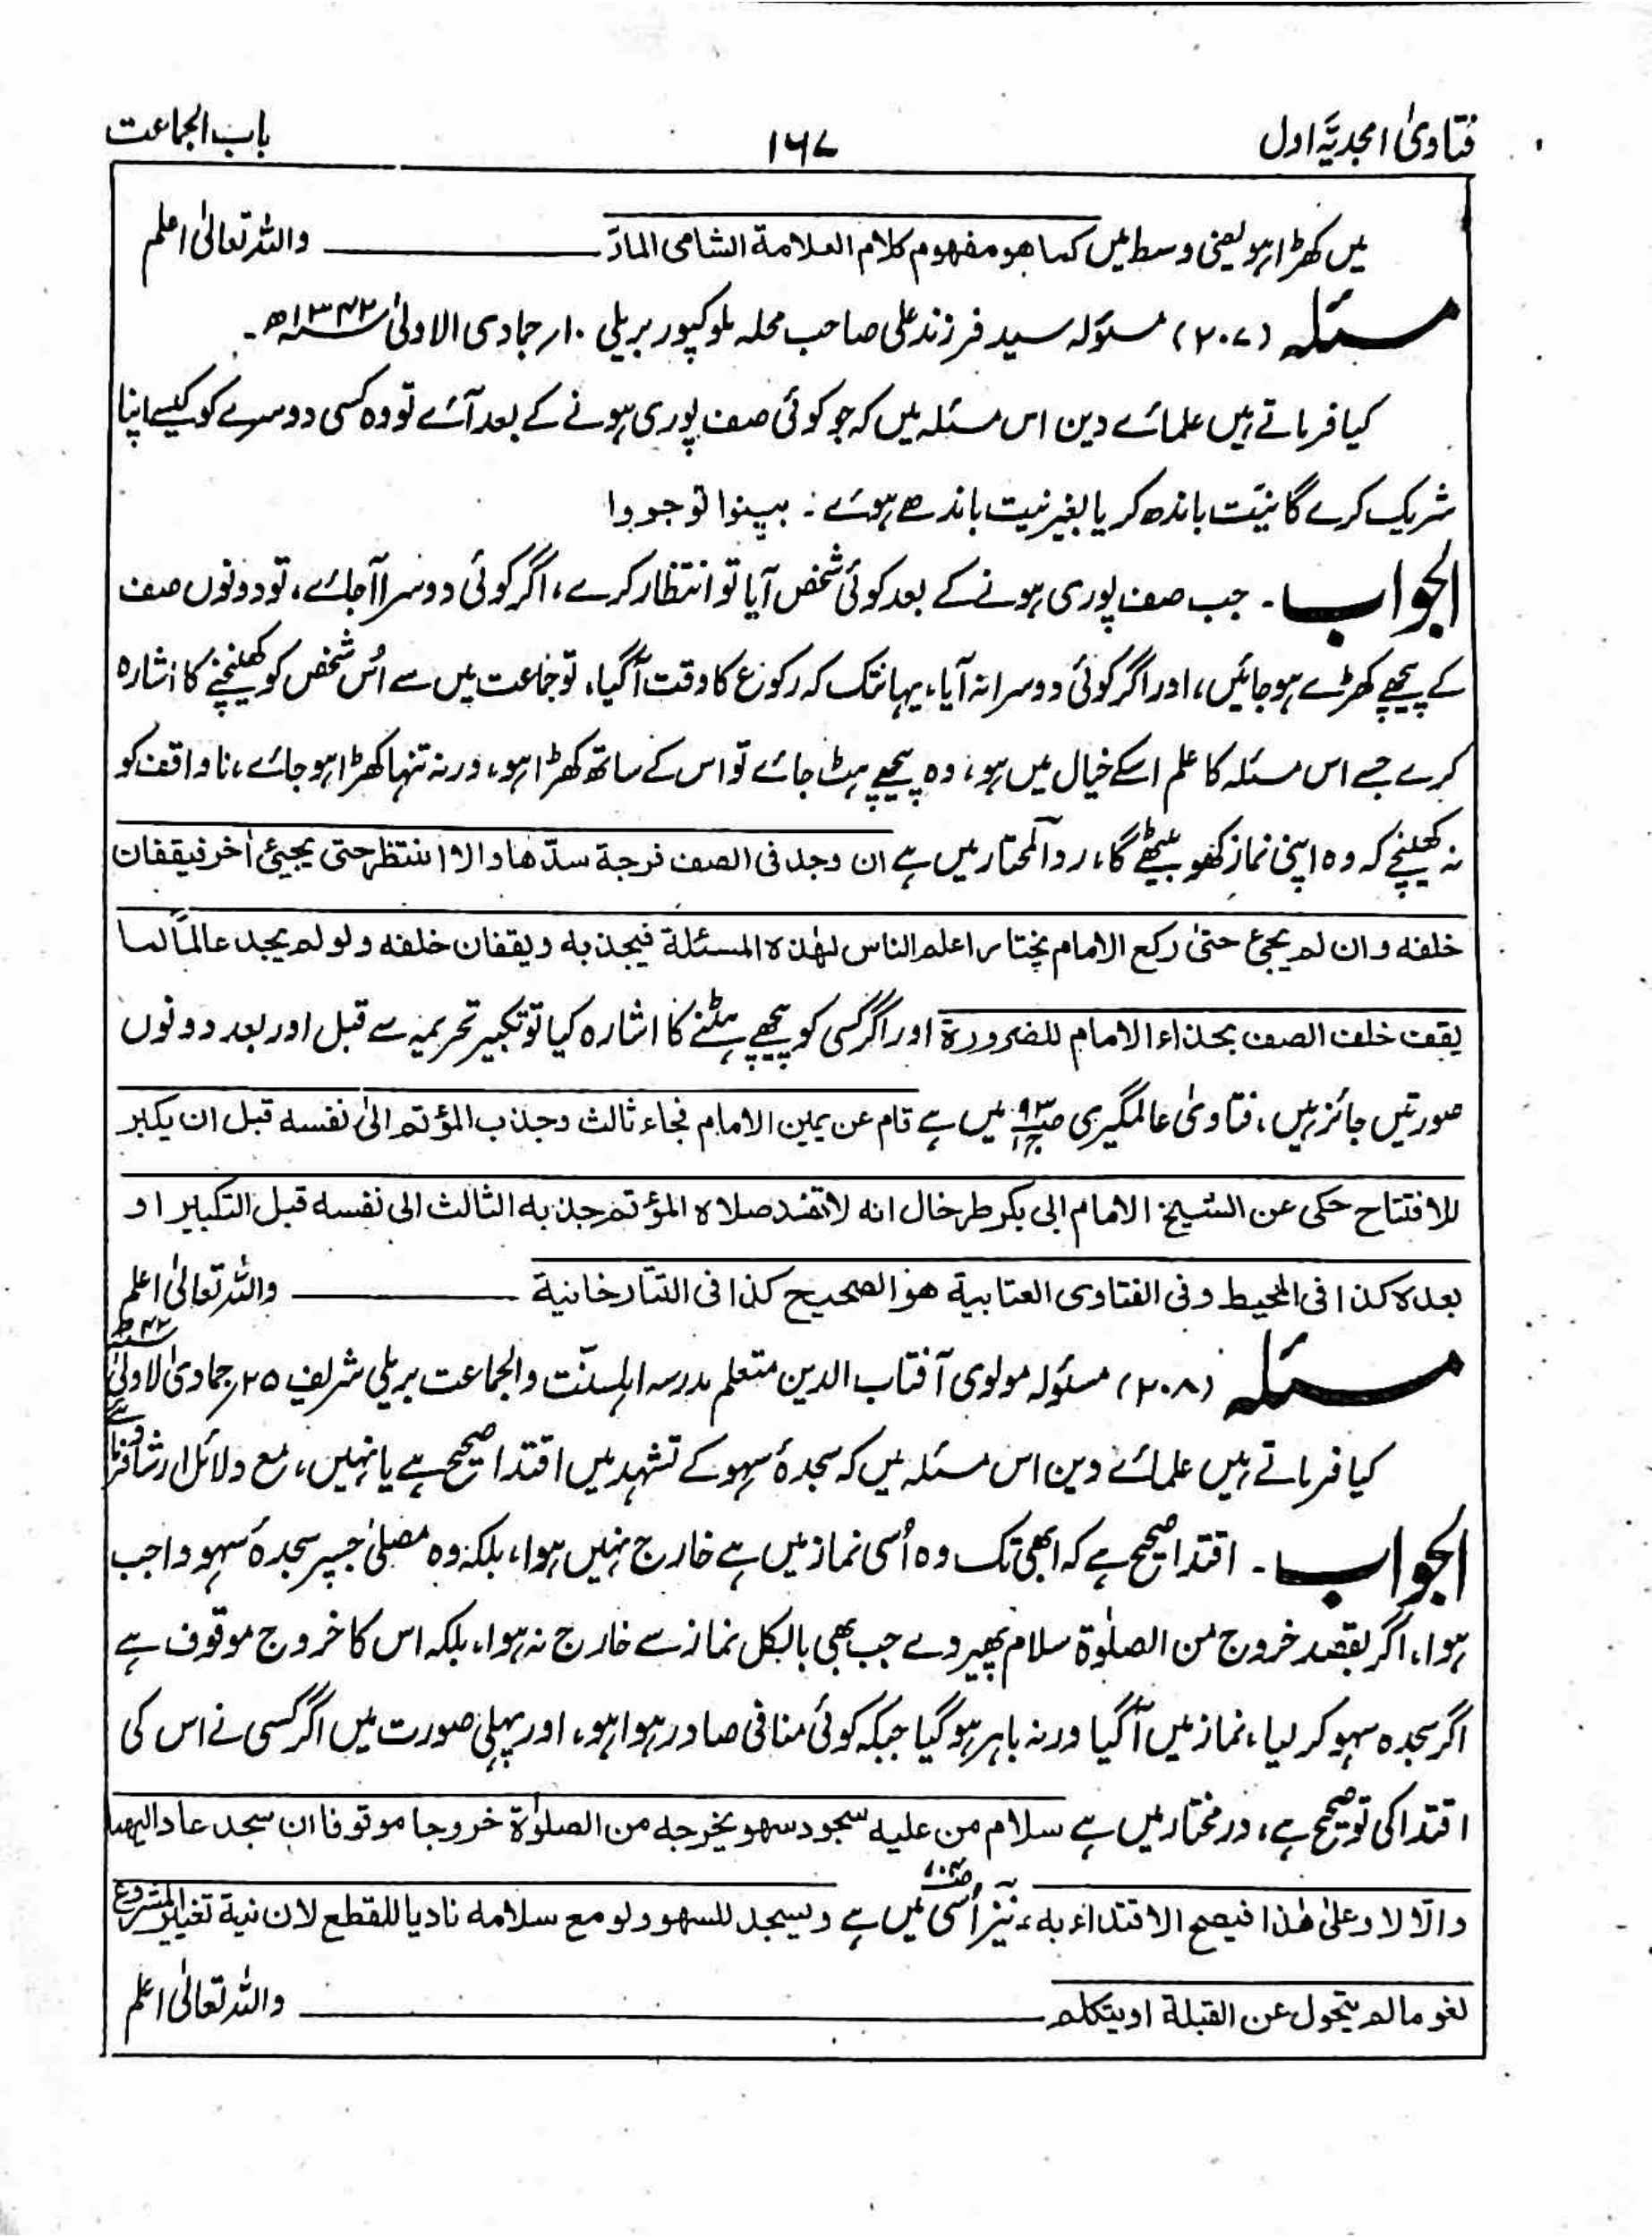 فتاویٰ امجدیّہ اول ۱۶۷ باب الجماعت
میں کھڑا ہو یعنی وسط میں کما ھو مفھوم کلام العلامۃ الشامی المارّ واللہ تعالیٰ اعلم
مسئلہ (۲۰۷) مسئولہ سید فرزند علی صاحب محلہ ملوکپور بریلی ۱۰ر جمادی الاولیٰ ۱۳۴۲ھ۔
کیا فرماتے ہیں علمائے دین اس مسئلہ میں کہ جو کوئی صف پوری ہونے کے بعد آئے تو وہ کسی دوسرے کو کیسے اپنا
شریک کرے گا نیّت باندھ کر یا بغیر نیت باندھے ہوئے : بینوا توجروا
الجواب۔ جب صف پوری ہونے کے بعد کوئی شخص آیا تو انتظار کرے، اگر کوئی دوسرا آجائے، تو دونوں صف
کے پیچھے کھڑے ہو جائیں، اور اگر کوئی دوسرا نہ آیا، یہانتک کہ رکوع کا وقت آگیا، تو جماعت میں سے اُس شخص کو کھینچنے کا اشارہ
کرے جسے اس مسئلہ کا علم اسکے خیال میں ہو، وہ پیچھے ہٹ جائے تو اس کے ساتھ کھڑا ہو، ورنہ تنہا کھڑا ہو جائے، ناواقف کو
نہ کھینچے کہ وہ اپنی نماز کھو بیٹھے گا، ردالمحتار میں ہے ان وجد فی الصف فرجۃ سدّھا والا انتظر حتی یجیئ اٰخر فیقفان
خلفہ وان لم یجئ حتیٰ رکع الامام یختار اعلم الناس لھٰذہ المسئلۃ فیجذبہ ویقفان خلفہ ولو لم یجد عالمًا لما
یقف خلف الصف بحذاء الامام للضرورۃ اور اگر کسی کو پیچھے ہٹنے کا اشارہ کیا تو تکبیر تحریمہ سے قبل اور بعد دونوں
صورتیں جائز ہیں، فتاویٰ عالمگیری ص۹۳ ج۱ میں ہے قام عن یمین الامام فجاء ثالث وجذب المؤتم الیٰ نفسہ قبل ان یکبر
للافتتاح حکی عن الشیخ الامام ابی بکر طرخال انہ لا تفسد صلاۃ المؤتم جذبہ الثالث الی نفسہ قبل التکبیر او
بعدہ کذا فی المحیط وفی الفتاوی العتابیۃ ھو الصحیح کذا فی التتارخانیۃ واللہ تعالیٰ اعلم
مسئلہ (۲۰۸) مسئولہ مولوی آفتاب الدین متعلم مدرسہ اہلسنّت والجماعت بریلی شریف ۲۵ر جمادی الاولیٰ ۴۲ھ
کیا فرماتے ہیں علمائے دین اس مسئلہ میں کہ سجدۂ سہو کے تشہد میں اقتدا صحیح ہے یا نہیں، مع دلائل ارشاد فرمائیے
الجواب۔ اقتدا صحیح ہے کہ ابھی تک وہ اُسی نماز میں ہے خارج نہیں ہوا، بلکہ وہ مصلیٰ جسپر سجدۂ سہو واجب
ہوا، اگر بقصد خروج من الصلوٰۃ سلام پھیر دے جب بھی بالکل نماز سے خارج نہ ہوا، بلکہ اس کا خروج موقوف ہے
اگر سجدہ سہو کر لیا، نماز میں آگیا ورنہ باہر ہو گیا جبکہ کوئی منافی صادر ہوا ہو، اور پہلی صورت میں اگر کسی نے اس کی
اقتدا کی تو صحیح ہے، درمختار میں ہے سلام من علیہ سجود سھو یخرجہ من الصلوٰۃ خروجا موقوفا ان سجد عاد الیھا
والّا لا وعلیٰ ھٰذا فیصح الاقتداء بہ، نیز اُسی میں ہے ویسجد للسھو ولو مع سلامہ نادیا للقطع لان نیۃ تغییر المشروع
لغو مالم یتحول عن القبلۃ او یتکلم واللہ تعالیٰ اعلم